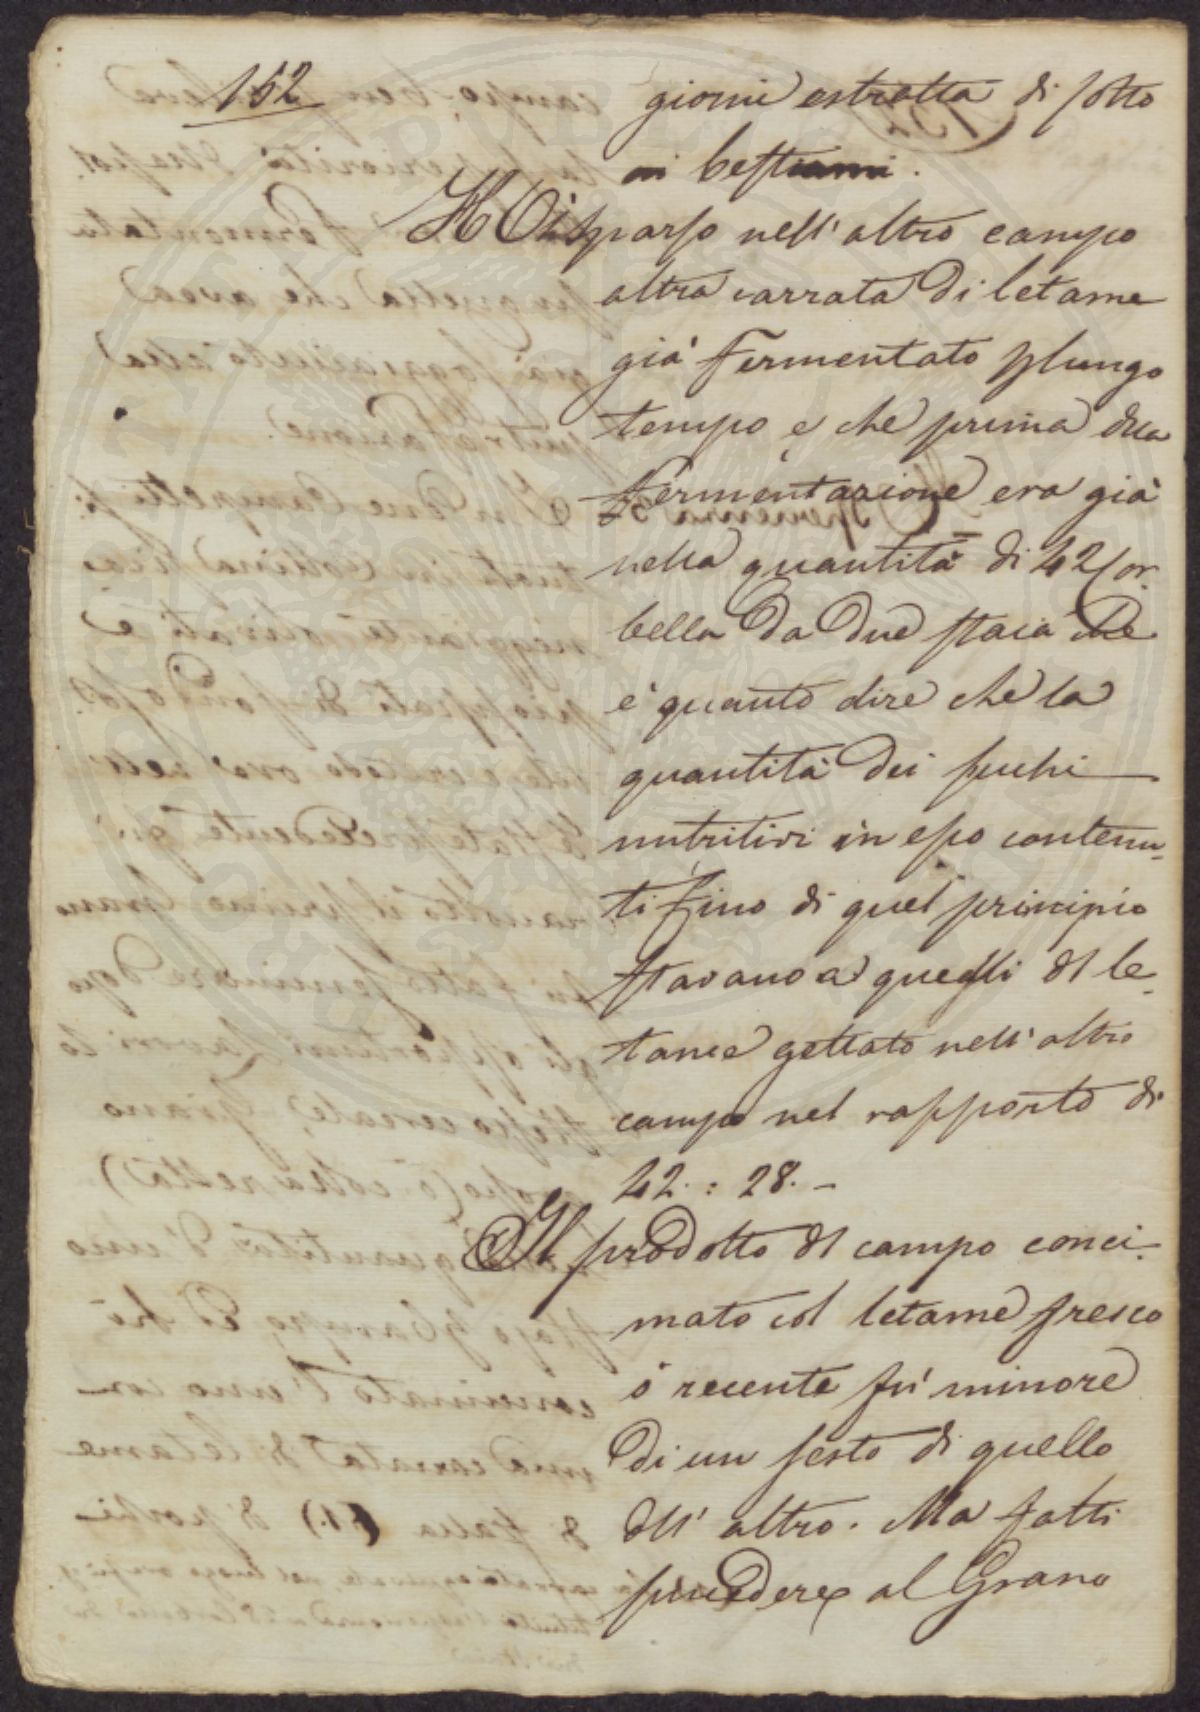 152
giorni estratta di sotto
ai bestiami.
Hò sparso nell'altro campo
altra carrata di letame
già fermentato p lungo
tempo, e che prima della
fermentazione era già
nella quantità di 42 Cor-
bella da due staia che
è quanto dire che la
quantità dei succhi
nutritivi in esso contenu-
ti fino di quel principio
stavano a quegli dl le-
tame gettato nell'altro
campo nel rapporto di
42. : 28. -
Il prodotto dl campo conci-
mato col letame fresco
ò recente fù minore
di un sesto di quello
dll' altro. Ma fatti
succedere al Grano